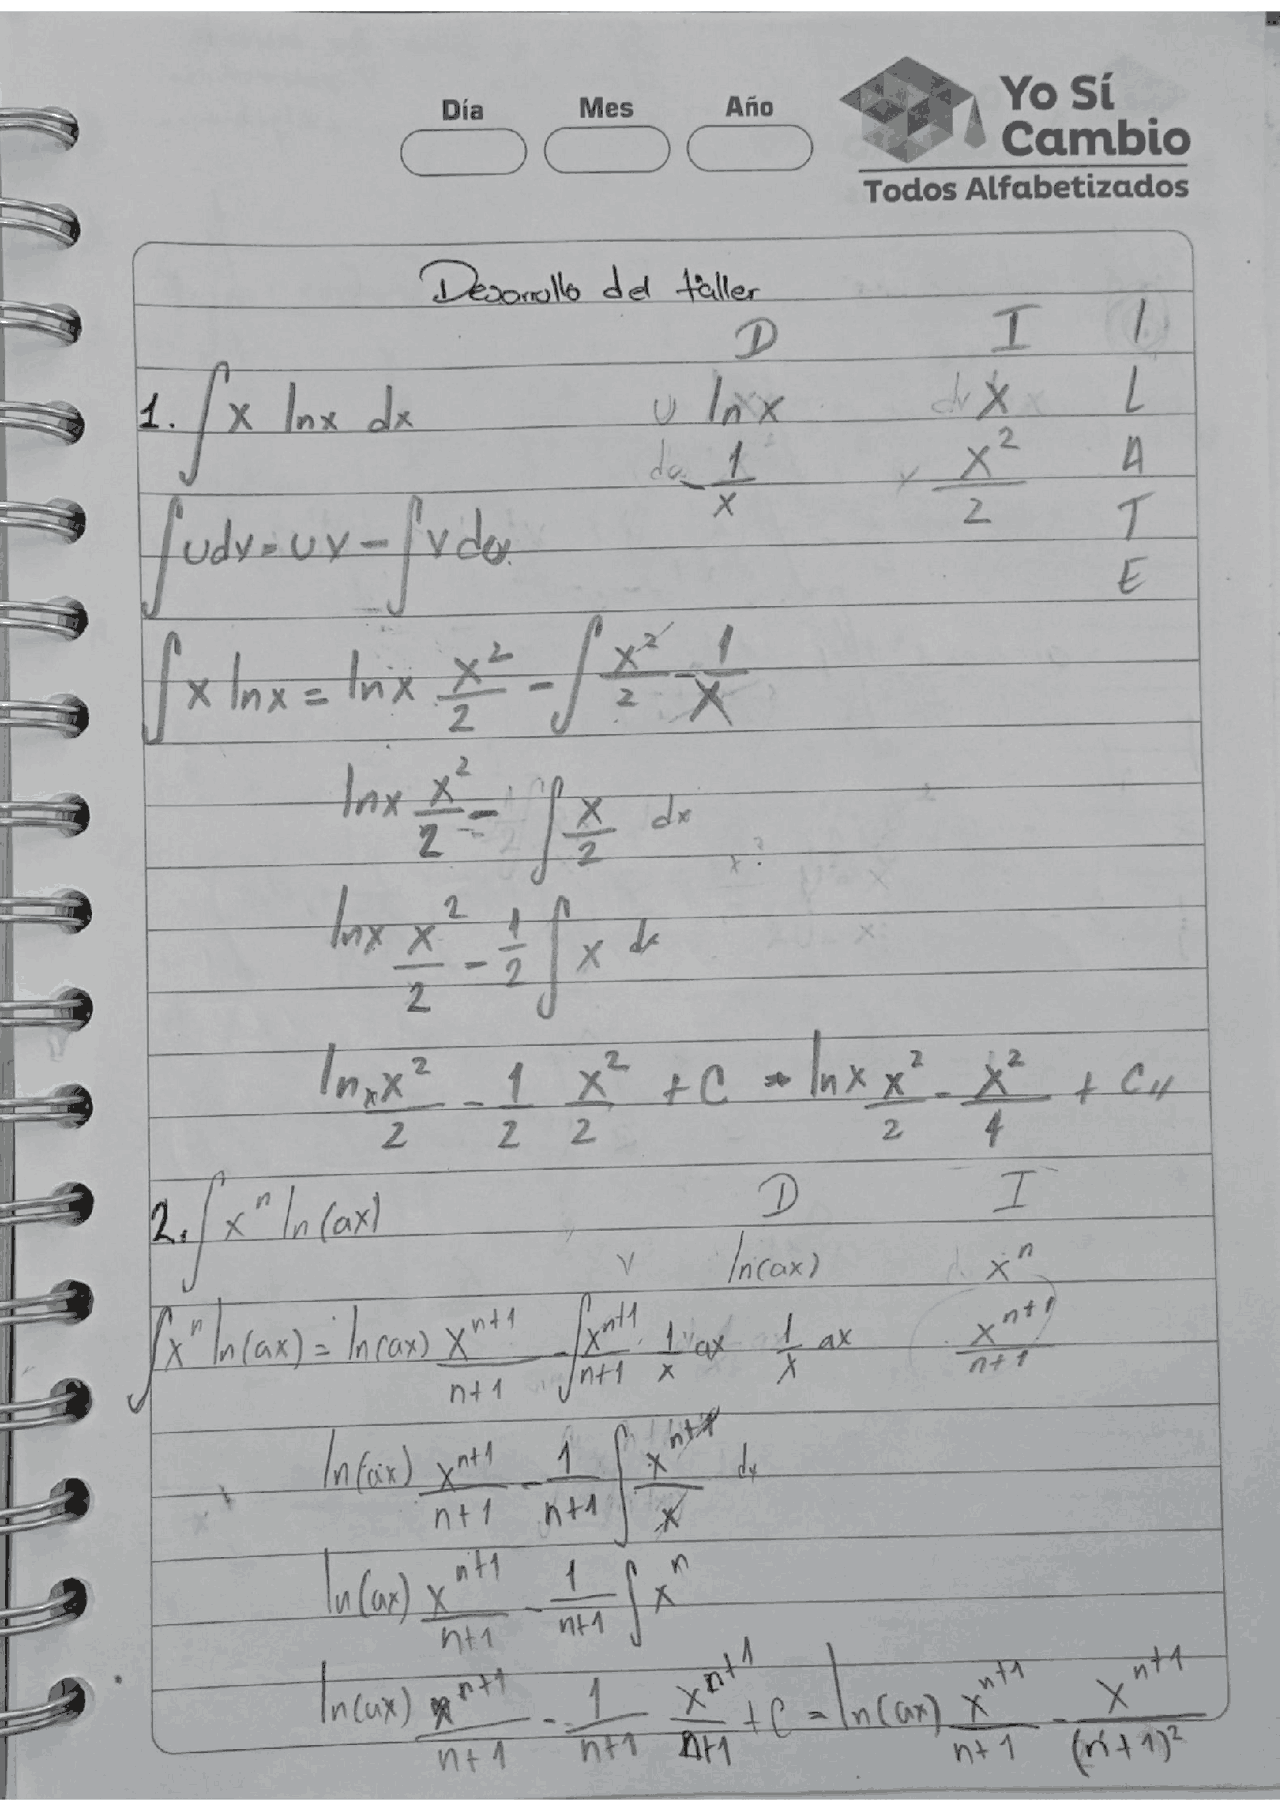 Día Mes Año
Yo Sí
Cambio
Todos Alfabetizados
Desarrollo del taller
D I I
1. ∫ x ln x dx u ln x dv x L
du 1/x v x²/2 A
∫ u dv = u v - ∫ v du T
E
∫ x ln x = ln x x²/2 - ∫ x²/2 1/x
ln x x²/2 - ∫ x/2 dx
ln x x²/2 - 1/2 ∫ x dx
ln x x²/2 - 1/2 x²/2 + C → ln x x²/2 - x²/4 + C //
2. ∫ xⁿ ln(ax) D I
ln(ax) xⁿ
∫ xⁿ ln(ax) = ln(ax) xⁿ⁺¹/n+1 - ∫ xⁿ⁺¹/n+1 · 1/x ax 1/x ax xⁿ⁺¹/n+1
ln(ax) xⁿ⁺¹/n+1 - 1/n+1 ∫ xⁿ⁺¹/x dx
ln(ax) xⁿ⁺¹/n+1 - 1/n+1 ∫ xⁿ
ln(ax) xⁿ⁺¹/n+1 - 1/n+1 xⁿ⁺¹/n+1 + C = ln(ax) xⁿ⁺¹/n+1 - xⁿ⁺¹/(n+1)²